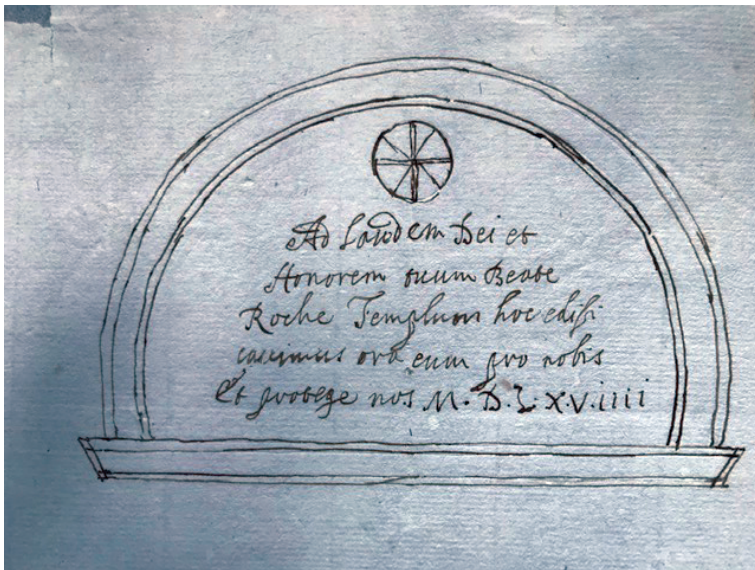 Ad Laudem Dei et
Honorem tuum Beate
Roche Templum hoc edifi
cavimus ora eum pro nobis
Et protege nos M. D. L. X.V. iiii